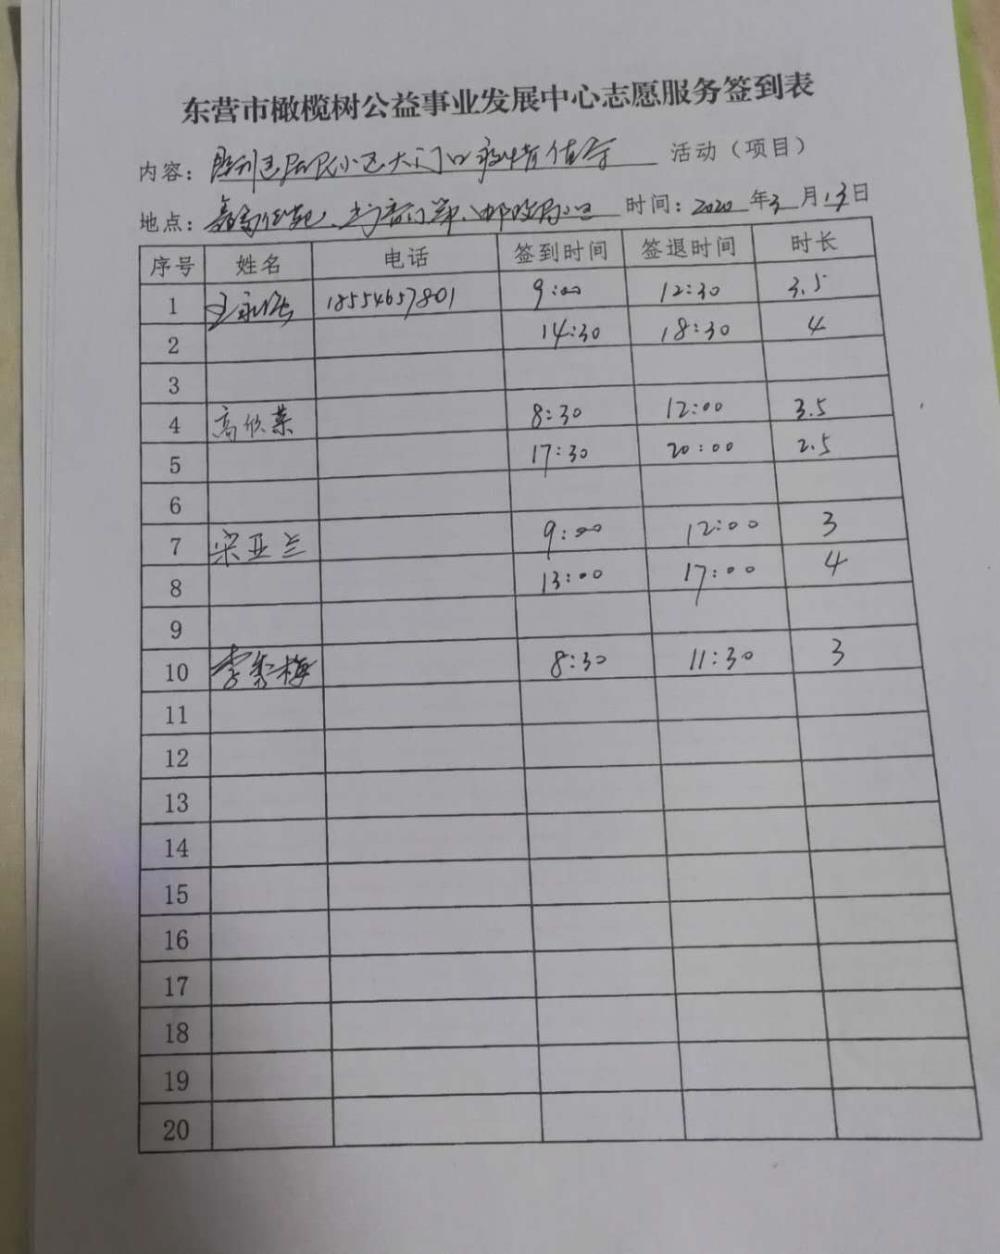 东营市橄榄树公益事业发展中心志愿服务签到表
内容：胜利 居民小区大门口疫情值守 活动（项目）
地点： 邮政局 时间：2020年3月13日
序号 姓名 电话 签到时间 签退时间 时长
1 王 18554657801 9:00 12:30 3.5
2 14:30 18:30 4
3
4 高欣荣 8:30 12:00 3.5
5 17:30 20:00 2.5
6
7 宋亚兰 9:00 12:00 3
8 13:00 17:00 4
9
10 李秀梅 8:30 11:30 3
11
12
13
14
15
16
17
18
19
20